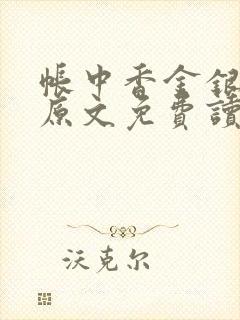 帳中香金銀
原文免費讀
沃克尔